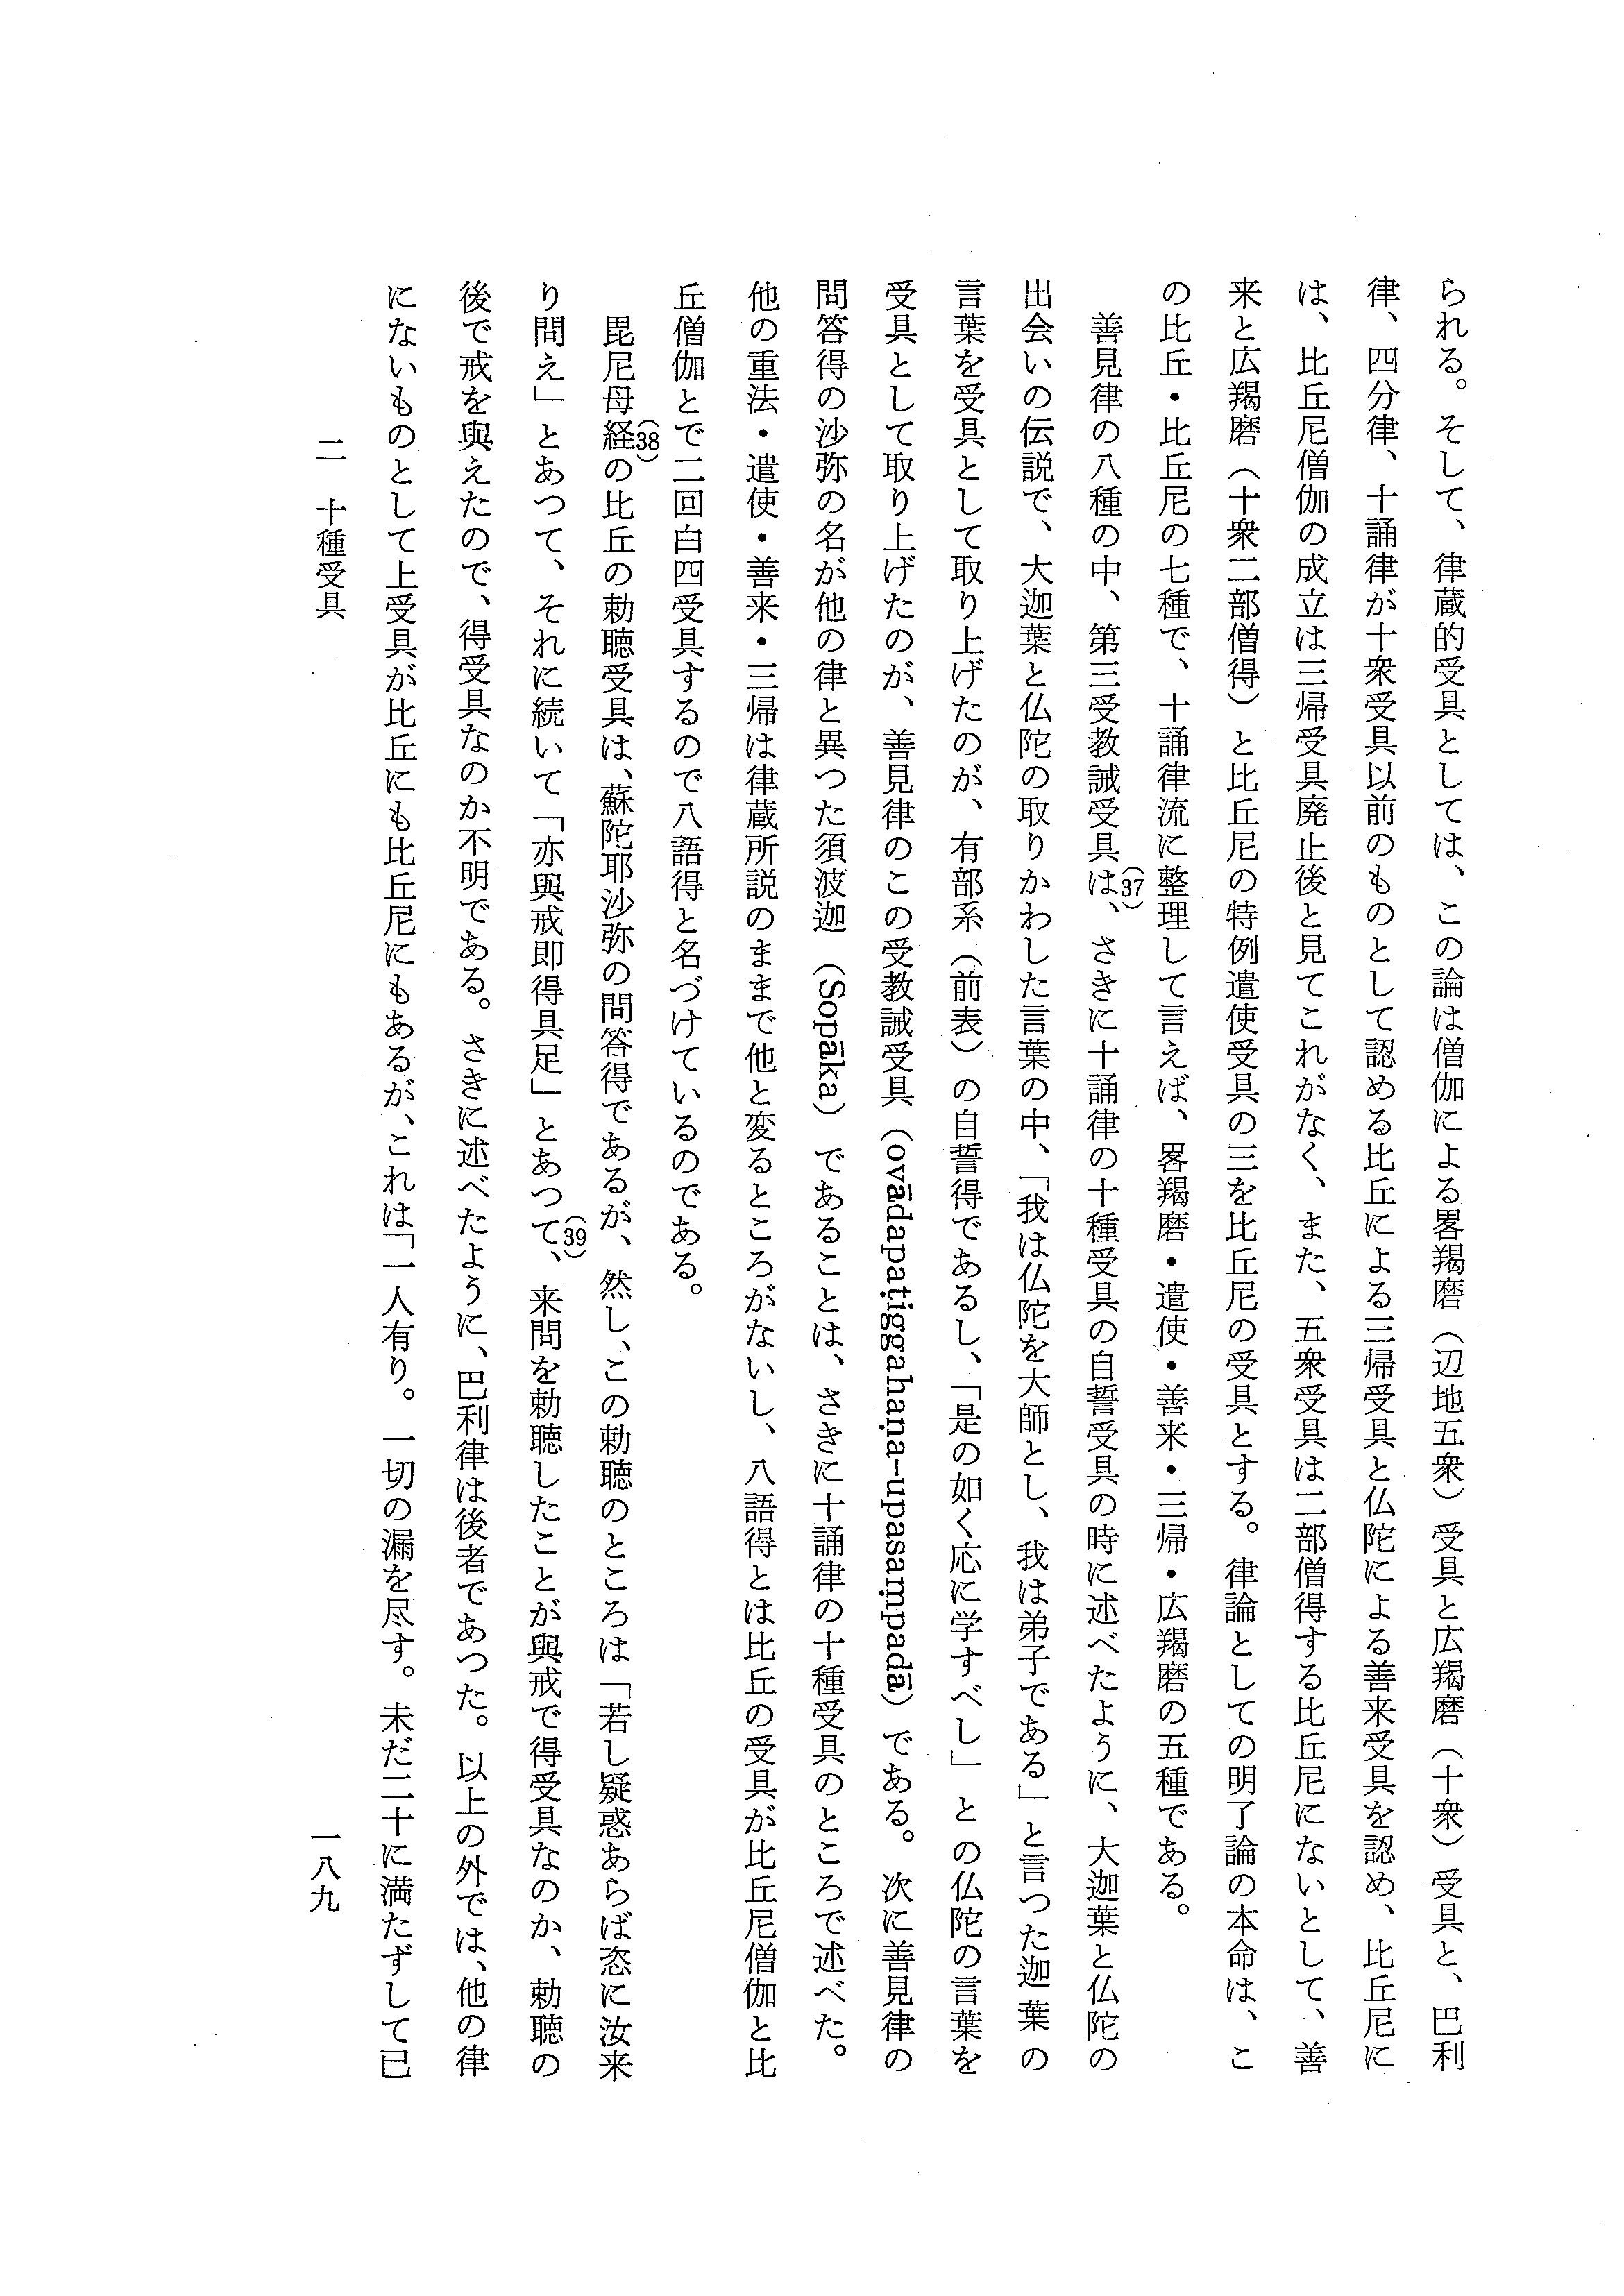 られる。そして、律蔵的受具としては、この論は僧伽による畧羯磨（辺地五衆）受具と広羯磨（十衆）受具と、巴利
律、四分律、十誦律が十衆受具以前のものとして認める比丘による三帰受具と仏陀による善来受具を認め、比丘尼に
は、比丘尼僧伽の成立は三帰受具廃止後と見てこれがなく、また、五衆受具は二部僧得する比丘尼にないとして、善
来と広羯磨（十衆二部僧得）と比丘尼の特例遣使受具の三を比丘尼の受具とする。律論としての明了論の本命は、こ
の比丘・比丘尼の七種で、十誦律流に整理して言えば、畧羯磨・遣使・善来・三帰・広羯磨の五種である。
善見律の八種の中、第三受教誡受具は(37)、さきに十誦律の十種受具の自誓受具の時に述べたように、大迦葉と仏陀の
出会いの伝説で、大迦葉と仏陀の取りかわした言葉の中、「我は仏陀を大師とし、我は弟子である」と言つた迦葉の
言葉を受具として取り上げたのが、有部系（前表）の自誓得であるし、「是の如く応に学すべし」との仏陀の言葉を
受具として取り上げたのが、善見律のこの受教誡受具（ovādapaṭiggahaṇa-upasaṃpadā）である。次に善見律の
問答得の沙弥の名が他の律と異つた須波迦（Sopāka）であることは、さきに十誦律の十種受具のところで述べた。
他の重法・遣使・善来・三帰は律蔵所説のままで他と変るところがないし、八語得とは比丘の受具が比丘尼僧伽と比
丘僧伽とで二回白四受具するので八語得と名づけているのである。
毘尼母経(38)の比丘の勅聴受具は、蘇陀耶沙弥の問答得であるが、然し、この勅聴のところは「若し疑惑あらば恣に汝来
り問え」とあつて、それに続いて「亦與戒即得具足」とあつて(39)、来問を勅聴したことが與戒で得受具なのか、勅聴の
後で戒を與えたので、得受具なのか不明である。さきに述べたように、巴利律は後者であつた。以上の外では、他の律
にないものとして上受具が比丘にも比丘尼にもあるが、これは「一人有り。一切の漏を尽す。未だ二十に満たずして已
二 十種受具
一八九